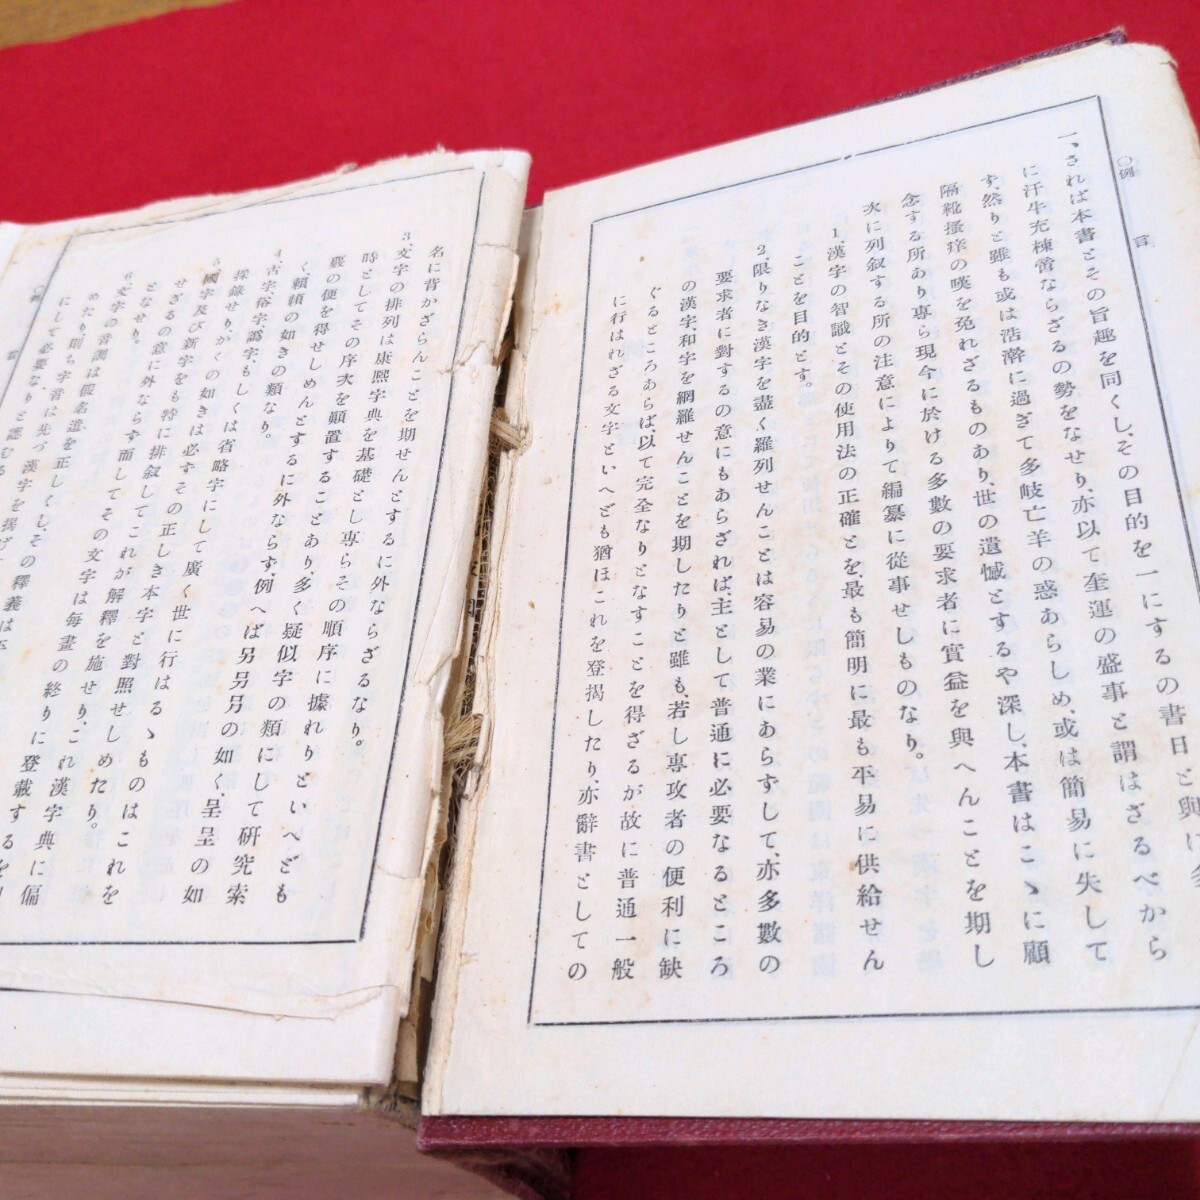 〇例言
一、されば本書とその旨趣を同くし、その目的を一にするの書日と與に
に汗牛充棟啻ならざるの勢をなせり、亦以て奎運の盛事と謂はざるべから
ず、然りと雖も或は浩澣に過ぎて多岐亡羊の惑あらしめ、或は簡易に失して
隔靴搔痒の嘆を免れざるものあり、世の遺憾とするや深し、本書はこゝに顧
念する所あり專ら現今に於ける多數の要求者に實益を與へんことを期し
次に列叙する所の注意によりて編纂に從事せしものなり。
1、漢字の智識とその使用法の正確とを、最も簡明に最も平易に供給せん
ことを目的とす。
2、限りなき漢字を盡く羅列せんことは容易の業にあらずして、亦多數の
要求者に對するの意にもあらざれば、主として普通に必要なるところ
の漢字、和字を網羅せんことを期したりと雖も、若し專攻者の便利に缺
ぐるところあらば、以て完全なりとなすことを得ざるが故に普通一般
に行はれざる文字といへども猶ほこれを登揭したり、亦辭書としての
名に背かざらんことを期せんとするに外ならざるなり。
3、文字の排列は康熙字典を基礎とし專らその順序に據れりといへども
時としてその序次を顚置することあり、多く疑似字の類にして硏究索
覈の便を得せしめんとするに外ならず、例へば另叧の如く呈呈の如
く、賴頼の如きの類なり。
4、古字俗字、譌字、もしくは省略字にして廣く世に行はるゝものはこれを
採錄せり、かくの如きは必ずその正しき本字と對照せしめたり。
5、國字及び新字をも特に排叙してこれが解釋を施せり、これ漢字典に偏
せざるの意に外ならず而してその文字は每畫の終りに登載するを
となせり。
6、文字の音訓は假名遣を正しくし、その釋義は
めたり、則ち字音は先づ漢字を揭げ
にして必要なりと認むる
〇例言